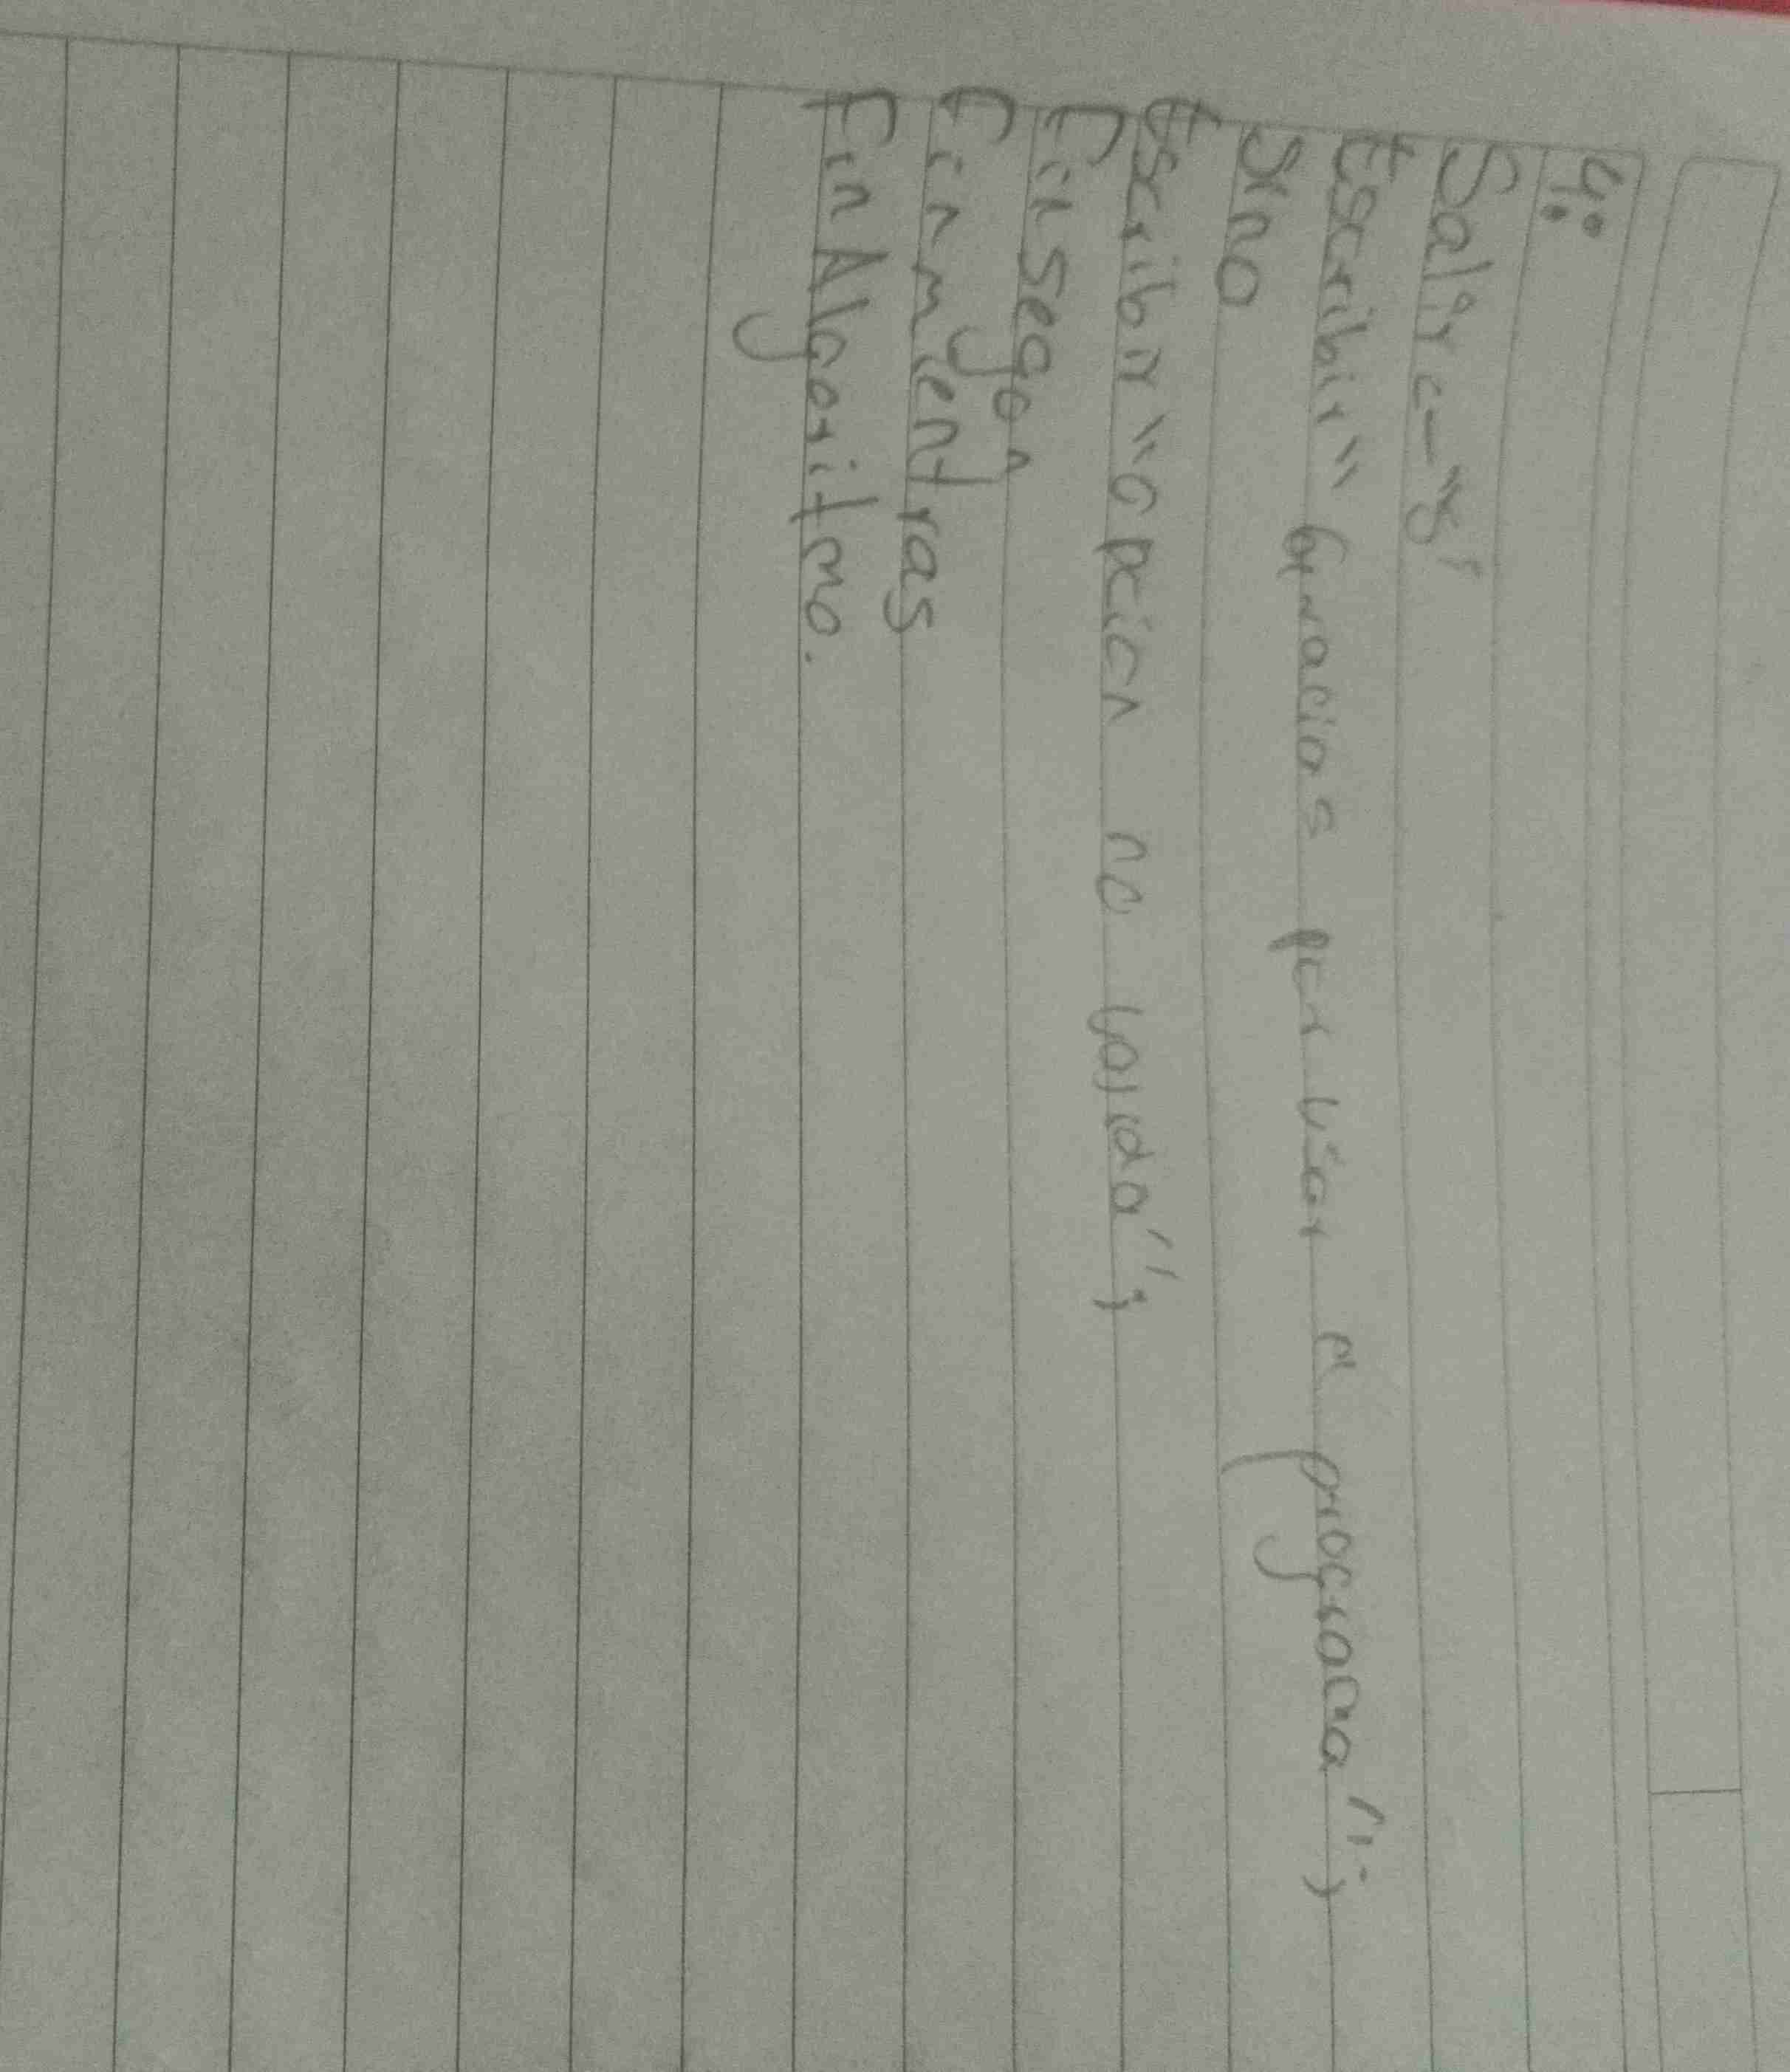 4:
Salir <- "s"
Escribir "Gracias por usar el programa";
Sino
Escribir "opcion no valida";
Finsegon
Finmientras
FinAlgoritmo.